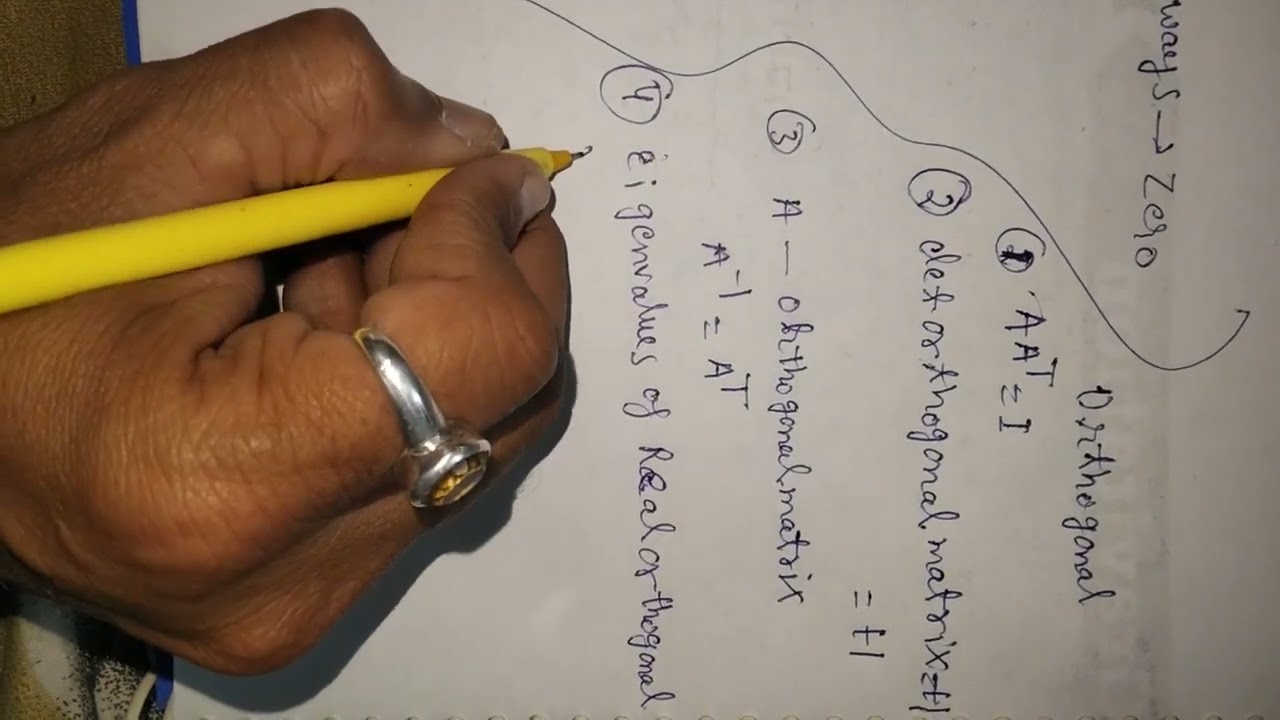 ways → Zero
Orthogonal
① AAᵀ = I
② det orthogonal matrix = ±1
= ±1
③ A — orthogonal matrix
A⁻¹ = Aᵀ
④ eigenvalues of Real orthogonal